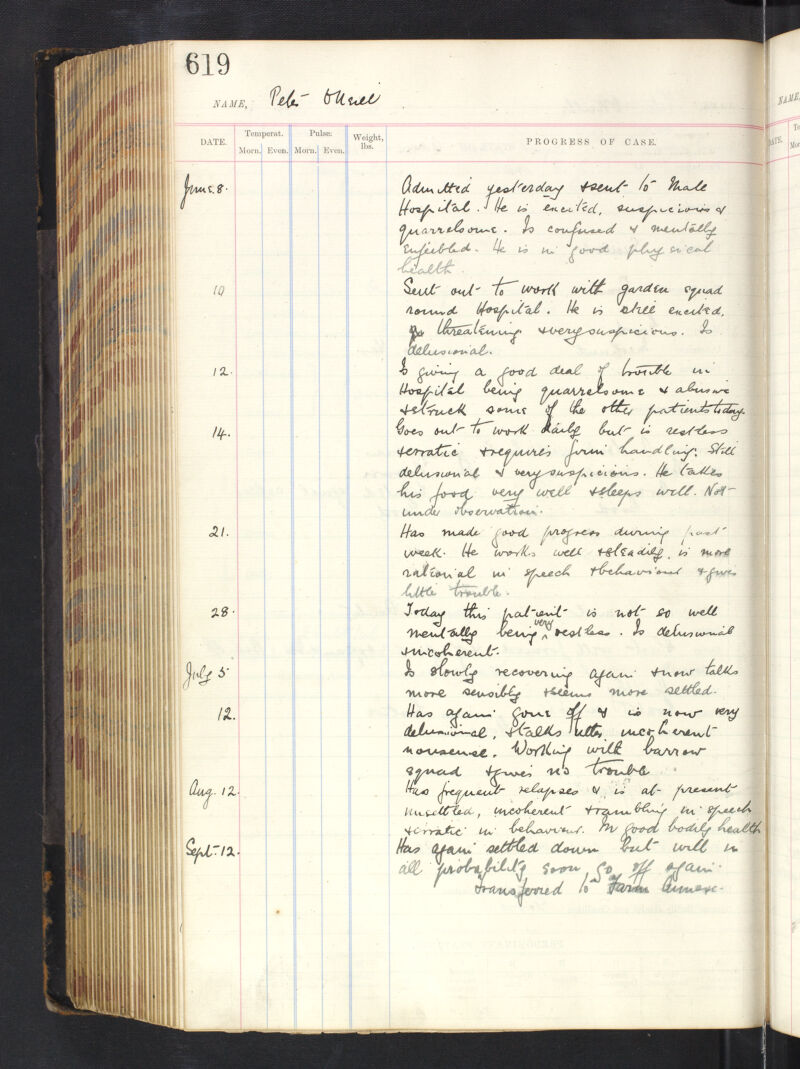 619
NAME, Peter O'Neill
DATE. Temperat. Pulse. Weight, lbs. PROGRESS OF CASE.
Morn. Even. Morn. Even.
June 8. Admitted yesterday & sent to Male
Hospital. He is excited, suspicious &
quarrelsome. Is confused & mentally
enfeebled. He is in good physical
health.
10 Sent out to work with garden squad
round Hospital. He is still excited,
threatening & very suspicious. Is
delusional.
12. Is giving a good deal of trouble in
Hospital being quarrelsome & abusive
& struck some of the other patients today.
14. Goes out to work daily but is restless
& erratic & requires firm handling. Still
delusional & very suspicious. He takes
his food very well & sleeps well. Not
under observation.
21. Has made good progress during past
week. He works well & steadily, is more
rational in speech & behaviour & gives
little trouble.
28. Today this patient is not so well
mentally being very restless. Is delusional
& incoherent.
July 5 Is slowly recovering again & now talks
more sensibly & seems more settled.
12. Has again gone off & is now very
delusional, & talks utter incoherent
nonsense. Working with barrow
squad & gives no trouble.
Aug. 12. Has frequent relapses & is at present
unsettled, incoherent & rambling in speech
& erratic in behaviour. In good bodily health
Sept. 12. Has again settled down but will in
all probability soon go off again.
Transferred to Farm Annexe.
NAME,
DATE.